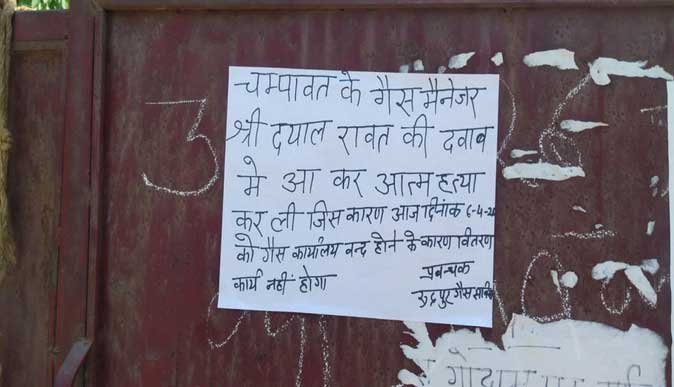 चम्पावत के गैस मैनेजर
श्री दयाल रावत की दवाव
मे आ कर आत्महत्या
कर ली जिस कारण आज दिनांक 6-4-20
को गैस कार्यालय वन्द होने के कारण वितरण
कार्य नहीं होगा
प्रवन्धक
रुद्रपुर गैस सर्विस
3
गोदाम